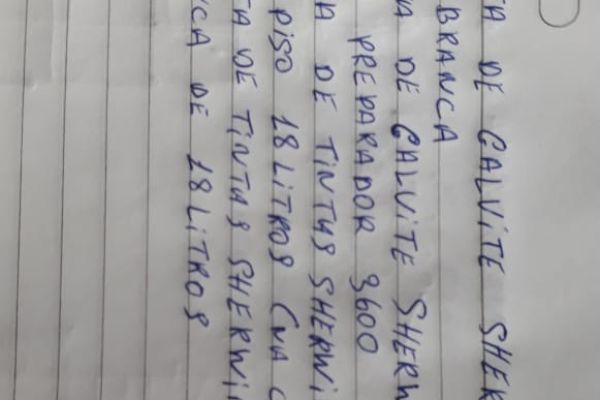 TA DE CALVITE SHER
BRANCA
A DE CALVITE SHERW
PREPARADOR 3600
A DE TINTAS SHERWI
PISO 18 LITROS CNA C
TA DE TINTAS SHERWI
CA DE 18 LITROS